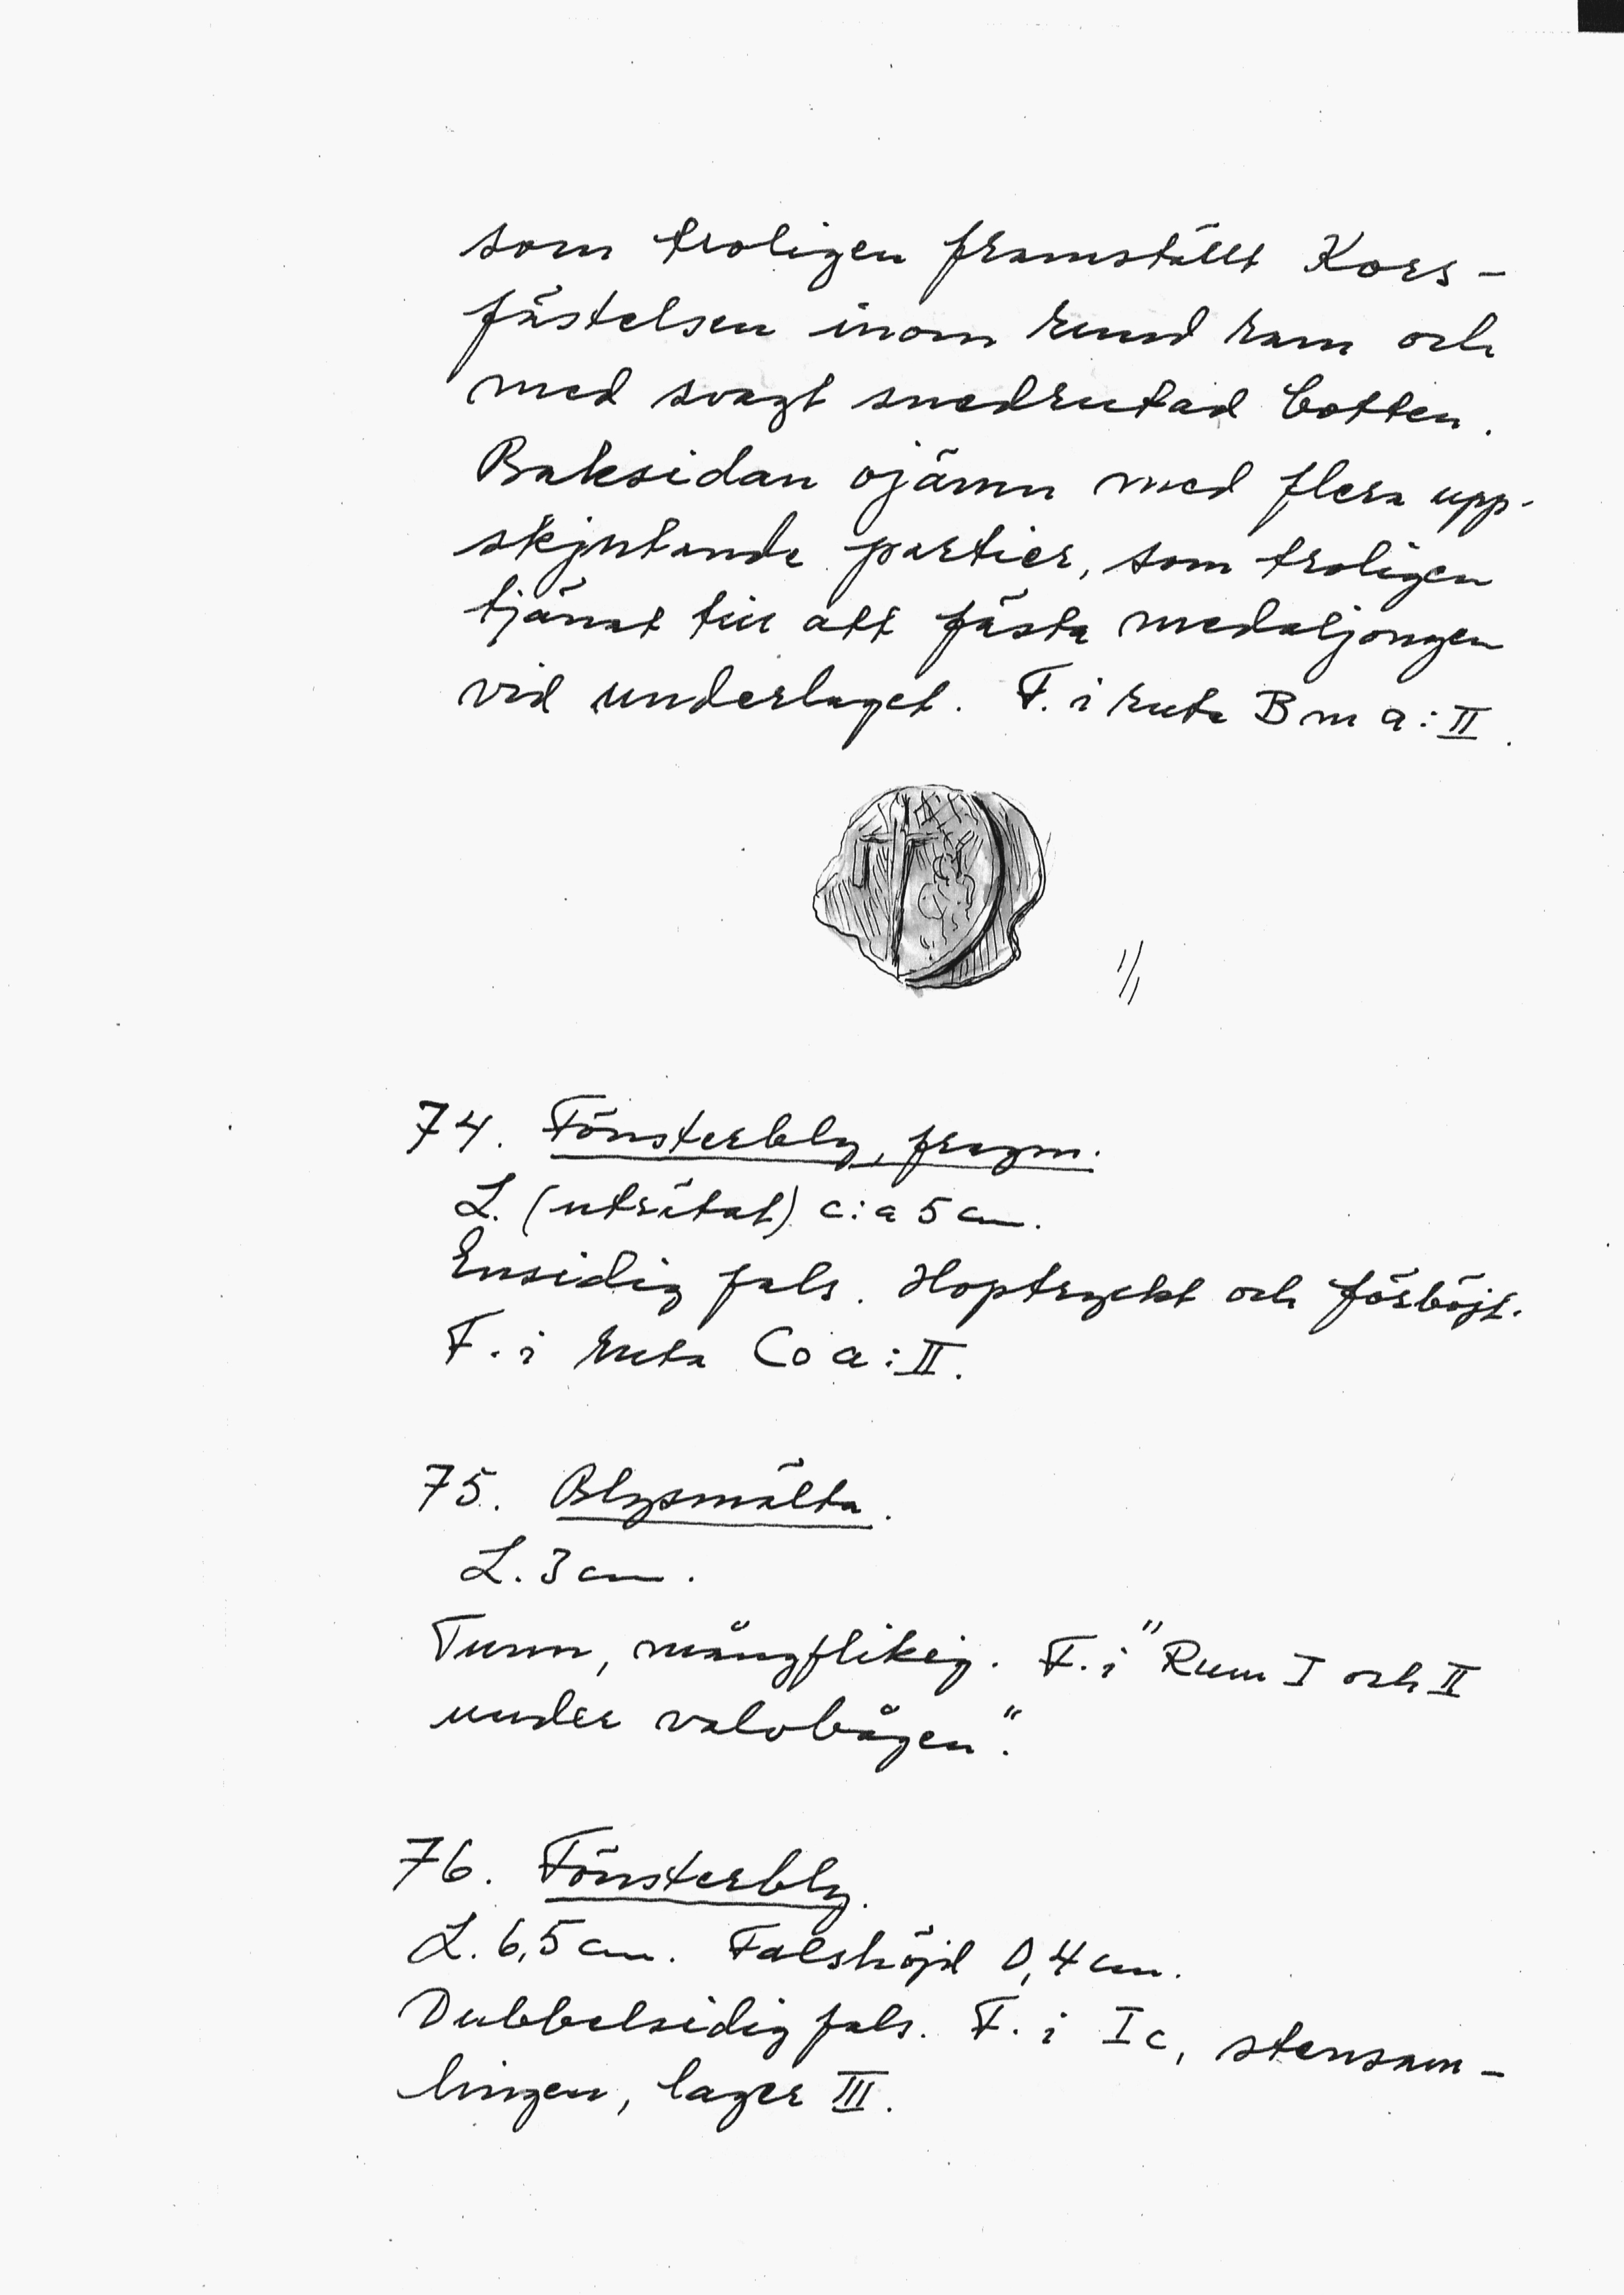 som troligen framställt Kors-
fästelsen inom rund ram och
med svagt snedrutad botten.
Baksidan ojämn med flera upp-
skjutande partier, som troligen
tjänat till att fästa medaljongen
vid underlaget. F. i ruta B m a : II.
1/1
74. Fönsterbly, fragm.
L. (uträtat) c:a 5 cm.
Ensidig fals. Hoptryckt och förböjt.
F. i ruta C o a : II.
75. Blysmälta.
L. 3 cm.
Tunn, mångflikig. F. i "Rum I och II
under valvbågen".
76. Fönsterbly.
L. 6,5 cm. Falshöjd 0,4 cm.
Dubbelsidig fals. F. i I c, stensam-
lingen, lager III.